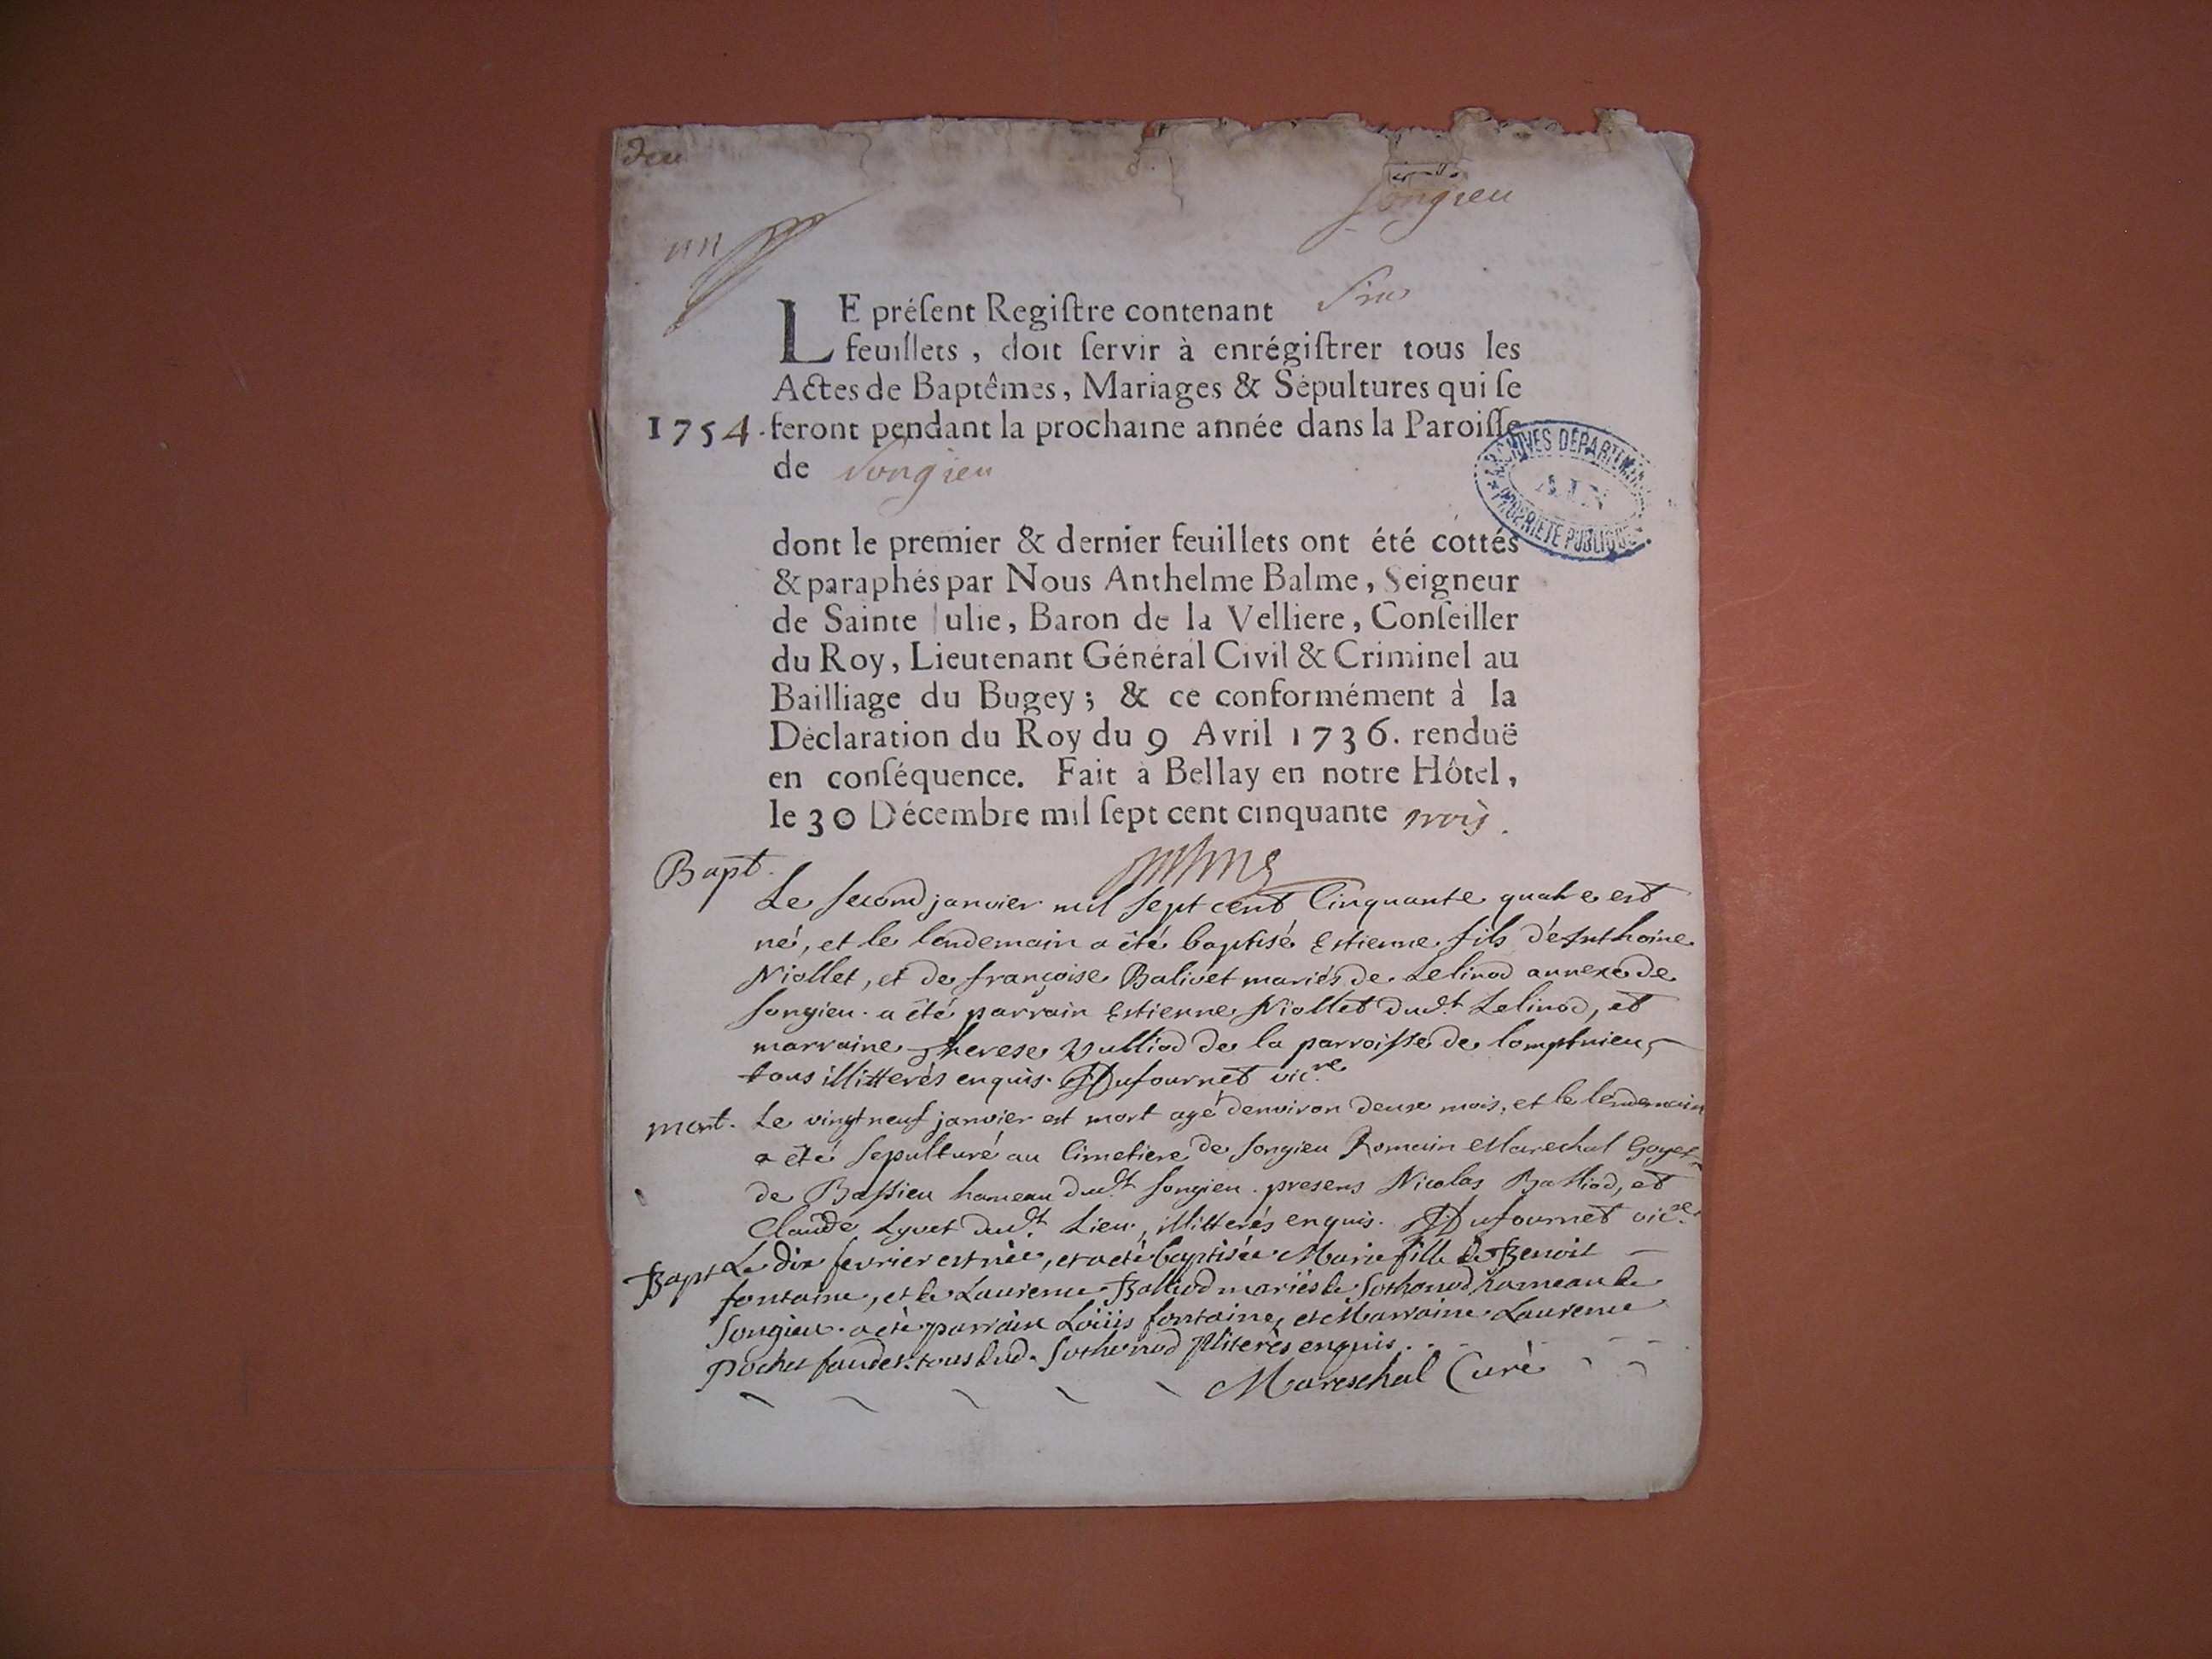 Songieu
LE préſent Regiſtre contenant Six
feuillets, doit ſervir à enrégiſtrer tous les
Actes de Baptêmes, Mariages & Sépultures qui ſe
1754. feront pendant la prochaine année dans la Paroiſſe
de Songieu
ARCHIVES DÉPARTEM
AIN
PROPRIÉTÉ PUBLIQUE
dont le premier & dernier feuillets ont été cottés
& paraphés par Nous Anthelme Balme, Seigneur
de Sainte Julie, Baron de la Velliere, Conſeiller
du Roy, Lieutenant Général Civil & Criminel au
Bailliage du Bugey; & ce conformément à la
Déclaration du Roy du 9 Avril 1736. renduë
en conſéquence. Fait à Bellay en notre Hôtel,
le 30 Décembre mil ſept cent cinquante trois.
Bapt.
Le second janvier mil sept cent Cinquante quatre est
né, et le lendemain a êté baptisé Estienne fils d'Anthoine
Niollet, et de françoise Balivet mariés de Lelinod annexe de
songieu. a été parrain Estienne Niollet dud.t Lelinod, et
marraine Therese Vulliod de la parroisse de lompnieu,
tous illitterés enquis. Dufournet vic.re
mort. Le vingt neuf janvier est mort agé denviron deux mois, et le lendemain
a eté sepulturé au Cimetiere de songieu Romain Marechal Goyet
de Bassieu hameau dud.t songieu. presens Nicolas Balliod, et
Claude Lyvet dud.t Lieu, illitterés enquis. Dufournet vic.re
Bapt Le dix fevrier est née, et a eté baptisée Marie fille de Benoit
fontaine, et de Laurence Balliod mariés de Sothonod hameau de
Songieu. a été parrain Loüis fontaine, et Marraine Laurence
Pochet tous dud. Sothonod Illiterés enquis.
Mareschal Curé